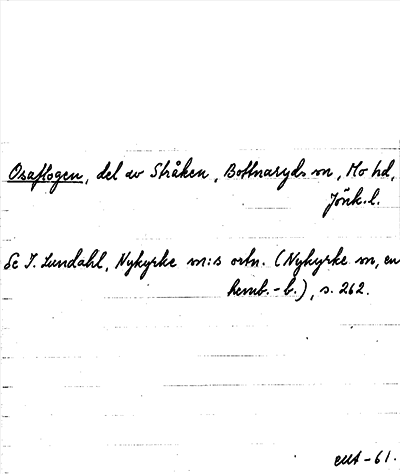 Osaflogen, del av Stråken, Bottnaryds sn, Mo hd,
Jönk.l.
Se I. Lundahl, Nykyrke sn:s ortn. (Nykyrke sn, en
hemb.-b.), s. 262.
EUA-61.